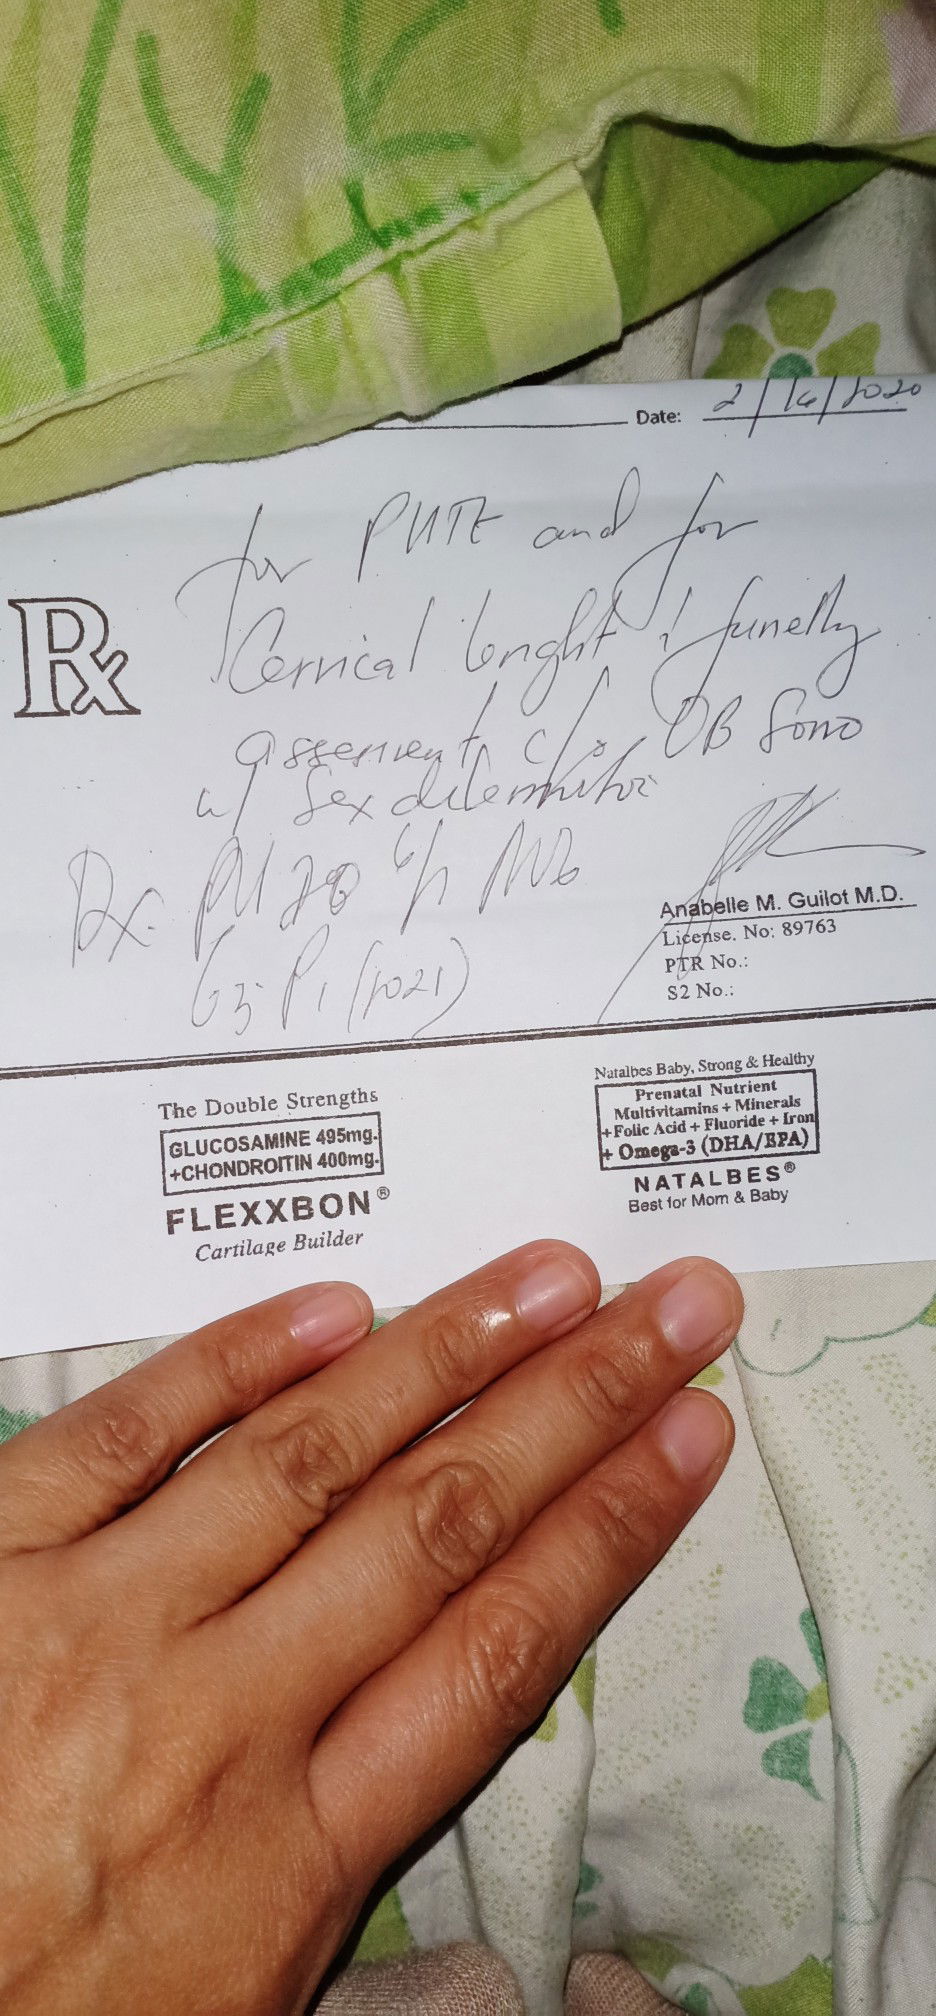 Date: 2/16/2020
for PUTZ and for
Rx
Cervical lenght & funelling
assesment c/o OB Sono
w/ Sex
Dx: PU
G3 P1 (1021)
Anabelle M. Guilot M.D.
License. No: 89763
PTR No.:
S2 No.:
The Double Strengths
GLUCOSAMINE 495mg.
+CHONDROITIN 400mg.
FLEXXBON®
Cartilage Builder
Natalbes Baby, Strong & Healthy
Prenatal Nutrient
Multivitamins + Minerals
+Folic Acid + Fluoride + Iron
+ Omega-3 (DHA/EPA)
NATALBES®
Best for Mom & Baby